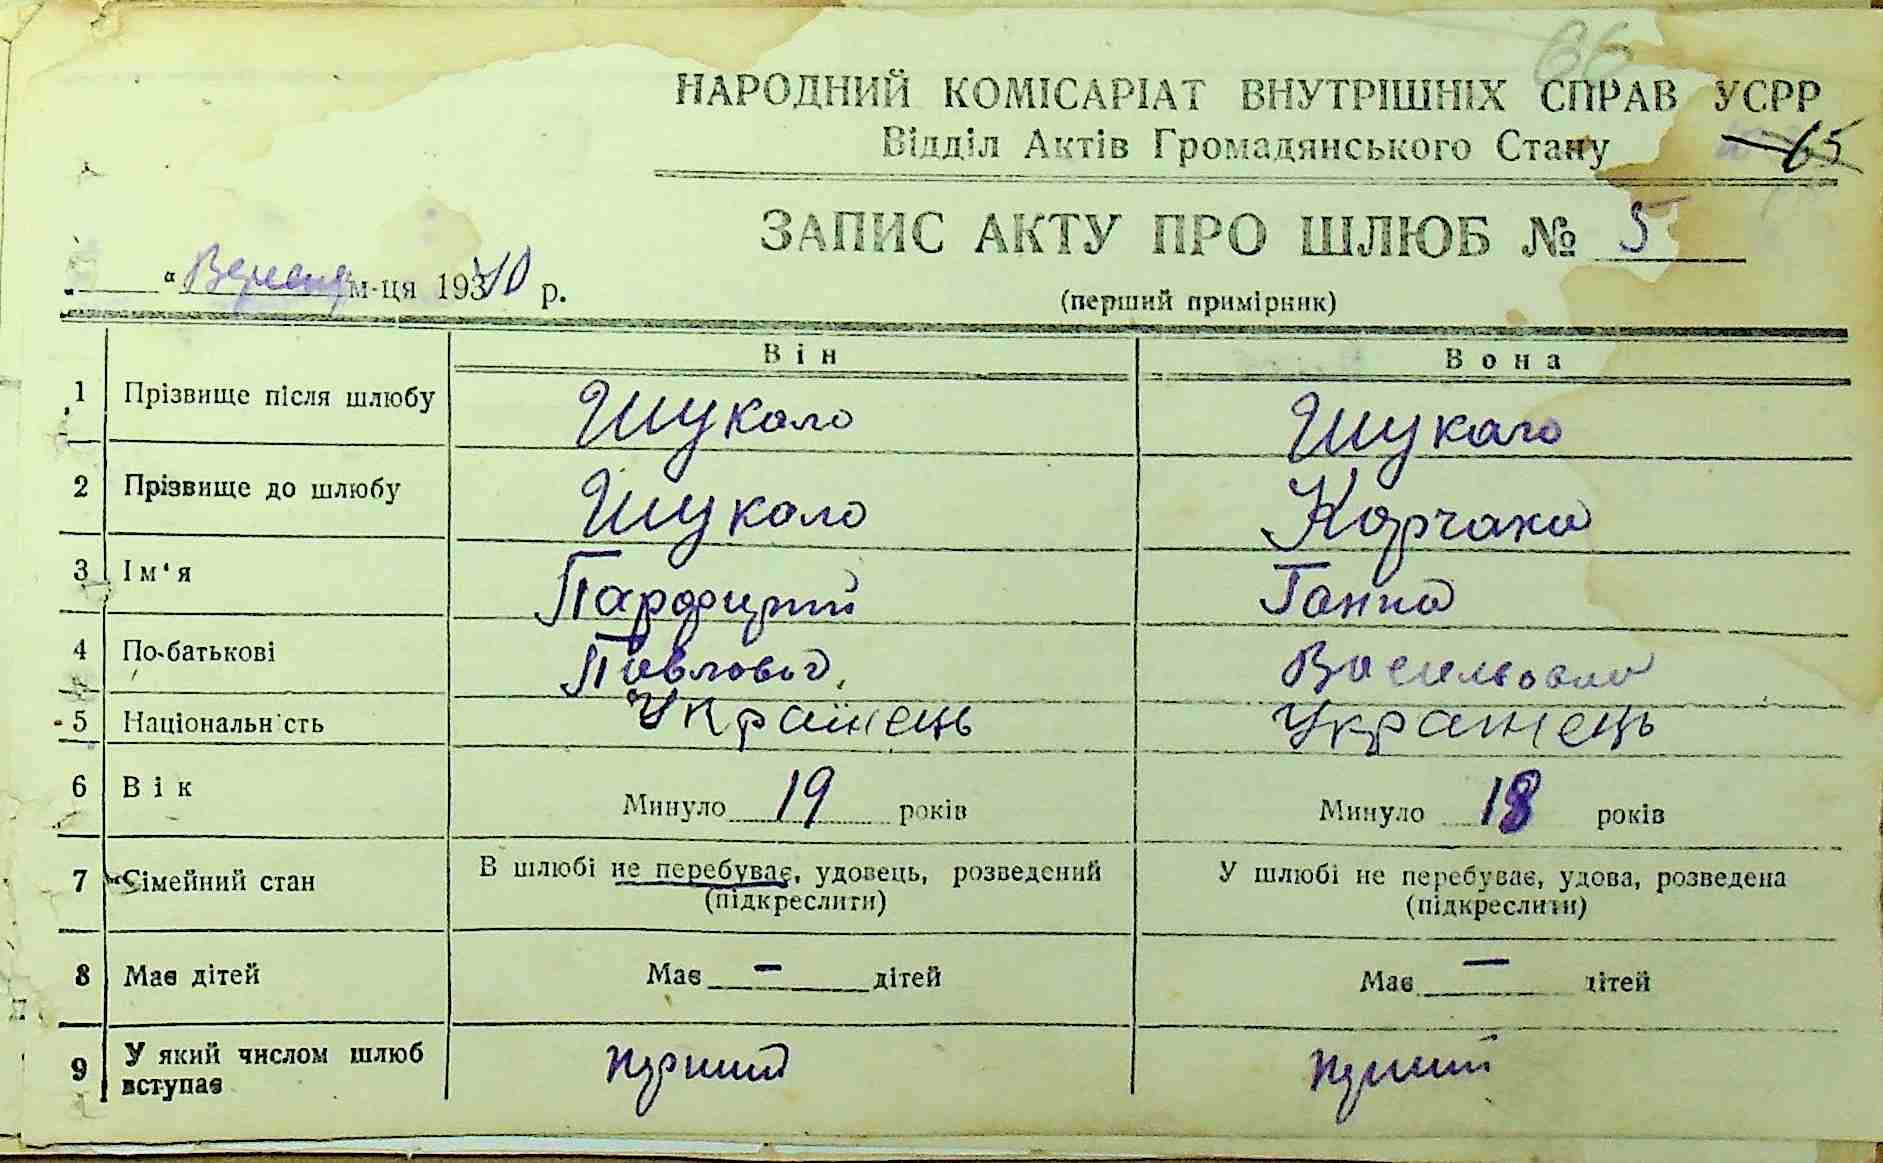 66
НАРОДНИЙ КОМІСАРІАТ ВНУТРІШНІХ СПРАВ УСРР
Відділ Актів Громадянського Стану 65
ЗАПИС АКТУ ПРО ШЛЮБ № 5
" м-ця 1940 р.
(перший примірник)
Він Вона
1 Прізвище після шлюбу Шукало Шукало
2 Прізвище до шлюбу Шукало Корчака
3 Ім'я Ганна
4 По-батькові Павлович Васильовна
5 Національність Українець Українець
6 Вік Минуло 19 років Минуло 18 років
7 Сімейний стан В шлюбі не перебуває, удовець, розведений У шлюбі не перебуває, удова, розведена
(підкреслити) (підкреслити)
8 Має дітей Має — дітей Має — дітей
9 У який числом шлюб
вступає перший перший